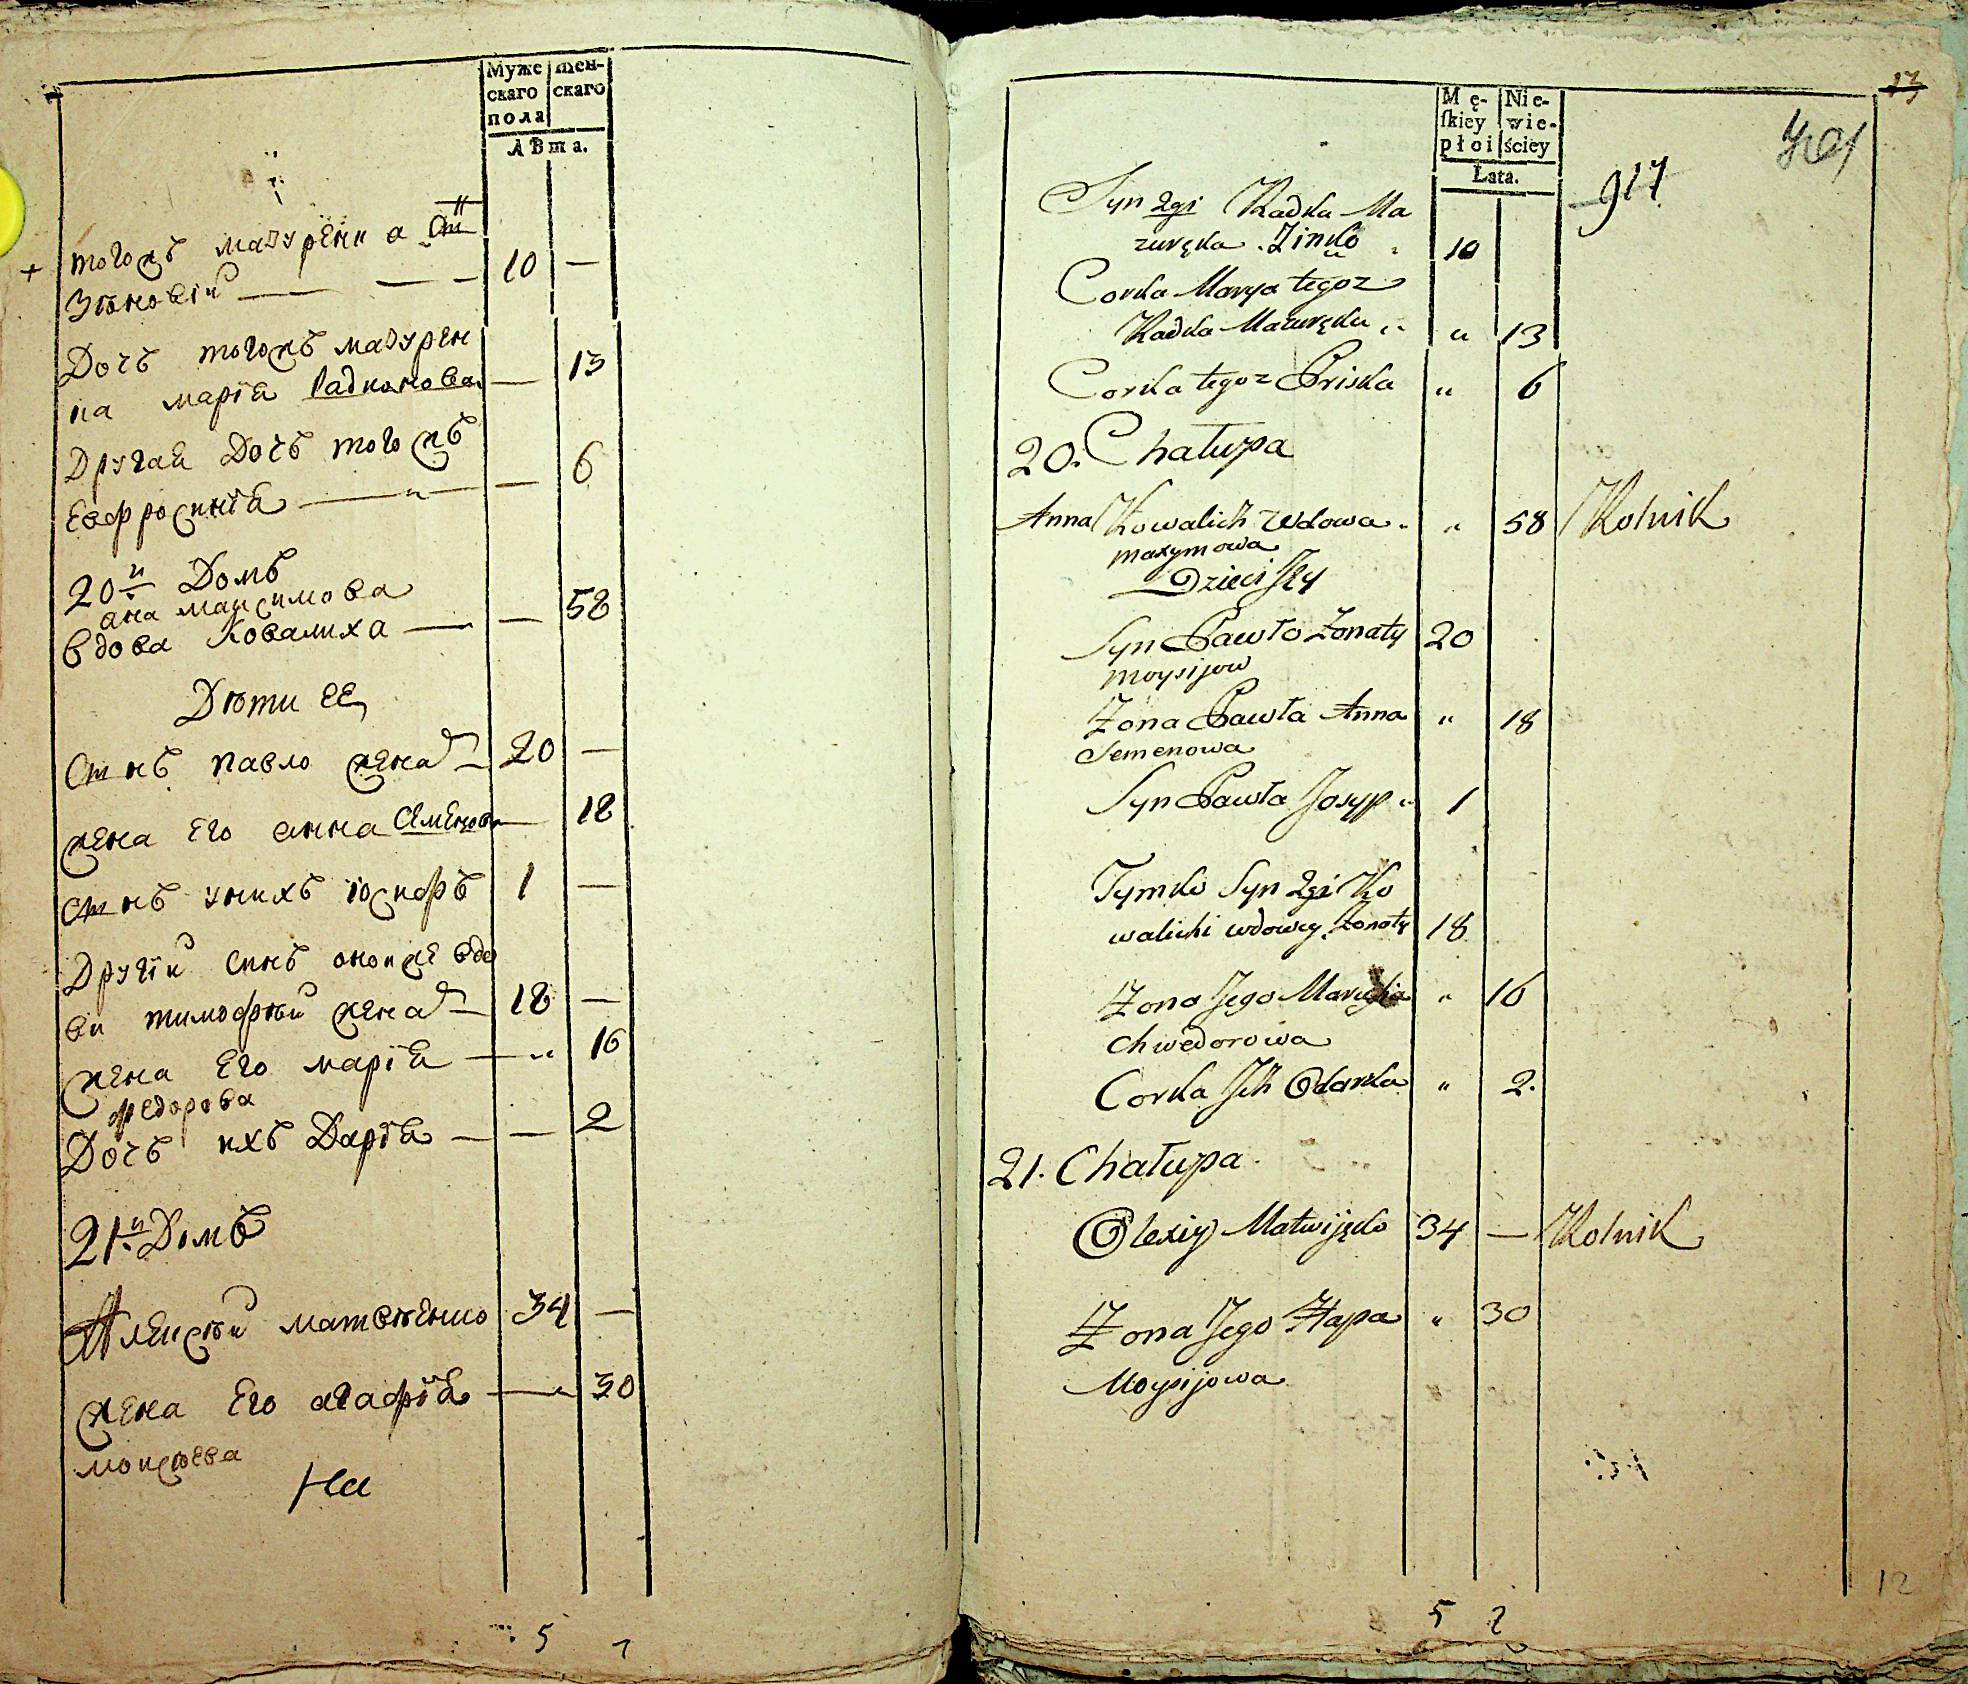 Муже
скаго
пола
жен-
скаго
лѣта.
тогожъ мазуренка
Зѣновій — 10 —
Дочъ тогожъ мазурен
ка марїѧ Радкокова — 13
Другаѧ Дочъ тогожъ
Евфросинїѧ — 6
20й Домъ
ана максимова
вдова Ковалиха — — 58
Дѣти ее
Синъ павло женат 20 —
жена его анна Семенова — 18
Синъ унихъ іосифъ 1 —
Другїй синъ оноиже вдо
ви тимофѣй женат 18 —
жена его марїѧ — 16
федорова
Дочъ ихъ Дарїѧ — — 2
21й Домъ
Алексѣй матвѣенко 34 —
жена его агафїѧ — 30
моисѣева
На
5 7
Mę-
skiey
płoi
Nie-
wie-
ściey
Łata.
17
917
Syn 2gi Radka Ma
zuręka Zinko 10
Corka Marya tegoz
Radka Mazuręka " 13
Corka tegoz Priska " 6
20. Chałupa
Anna Kowalich wdowa " 58 Rolnik
maxymowa
Dzieci Jey
Syn Pawło Żonaty 20
moysijow
Żona Pawła Anna " 18
Semenowa
Syn Pawła Josyp 1
Tymko Syn 2gi Ko
walichi wdowy Żonaty 18
Żona Jego Marucha " 16
Chwedorowa
Corka Jch Odarka " 2.
21. Chałupa
Olexiy Matwijęko 34 — Rolnik
Żona Jego Hapa " 30
Moysijowa
5 7
12